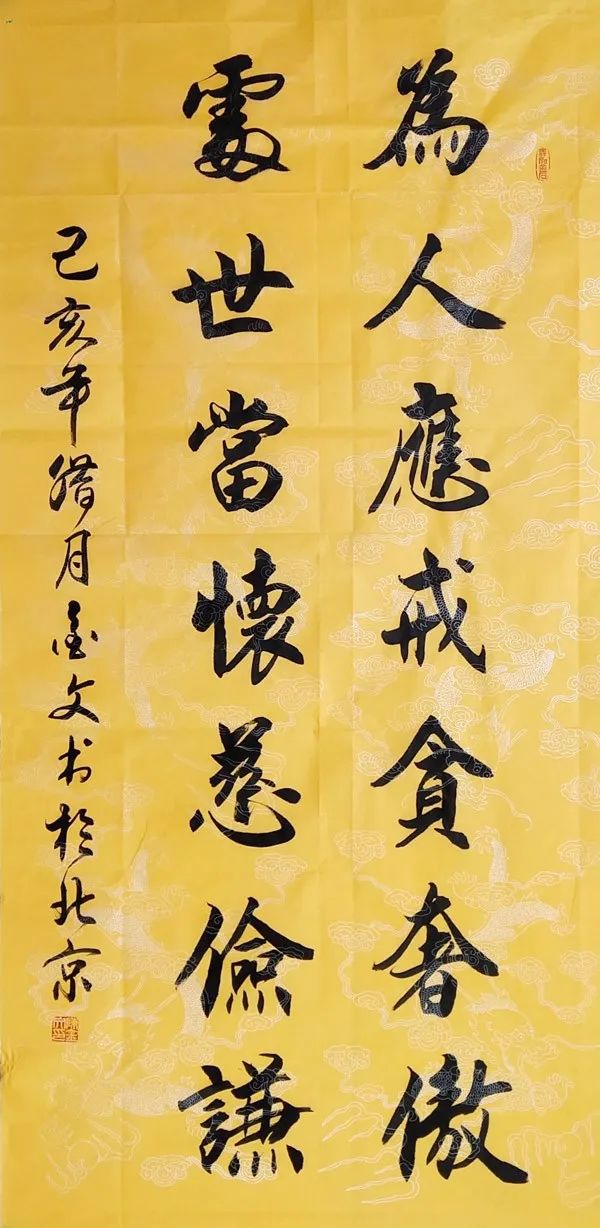 為人應戒貪奢傲
處世當懷慈儉謙
己亥年腊月金文书於北京